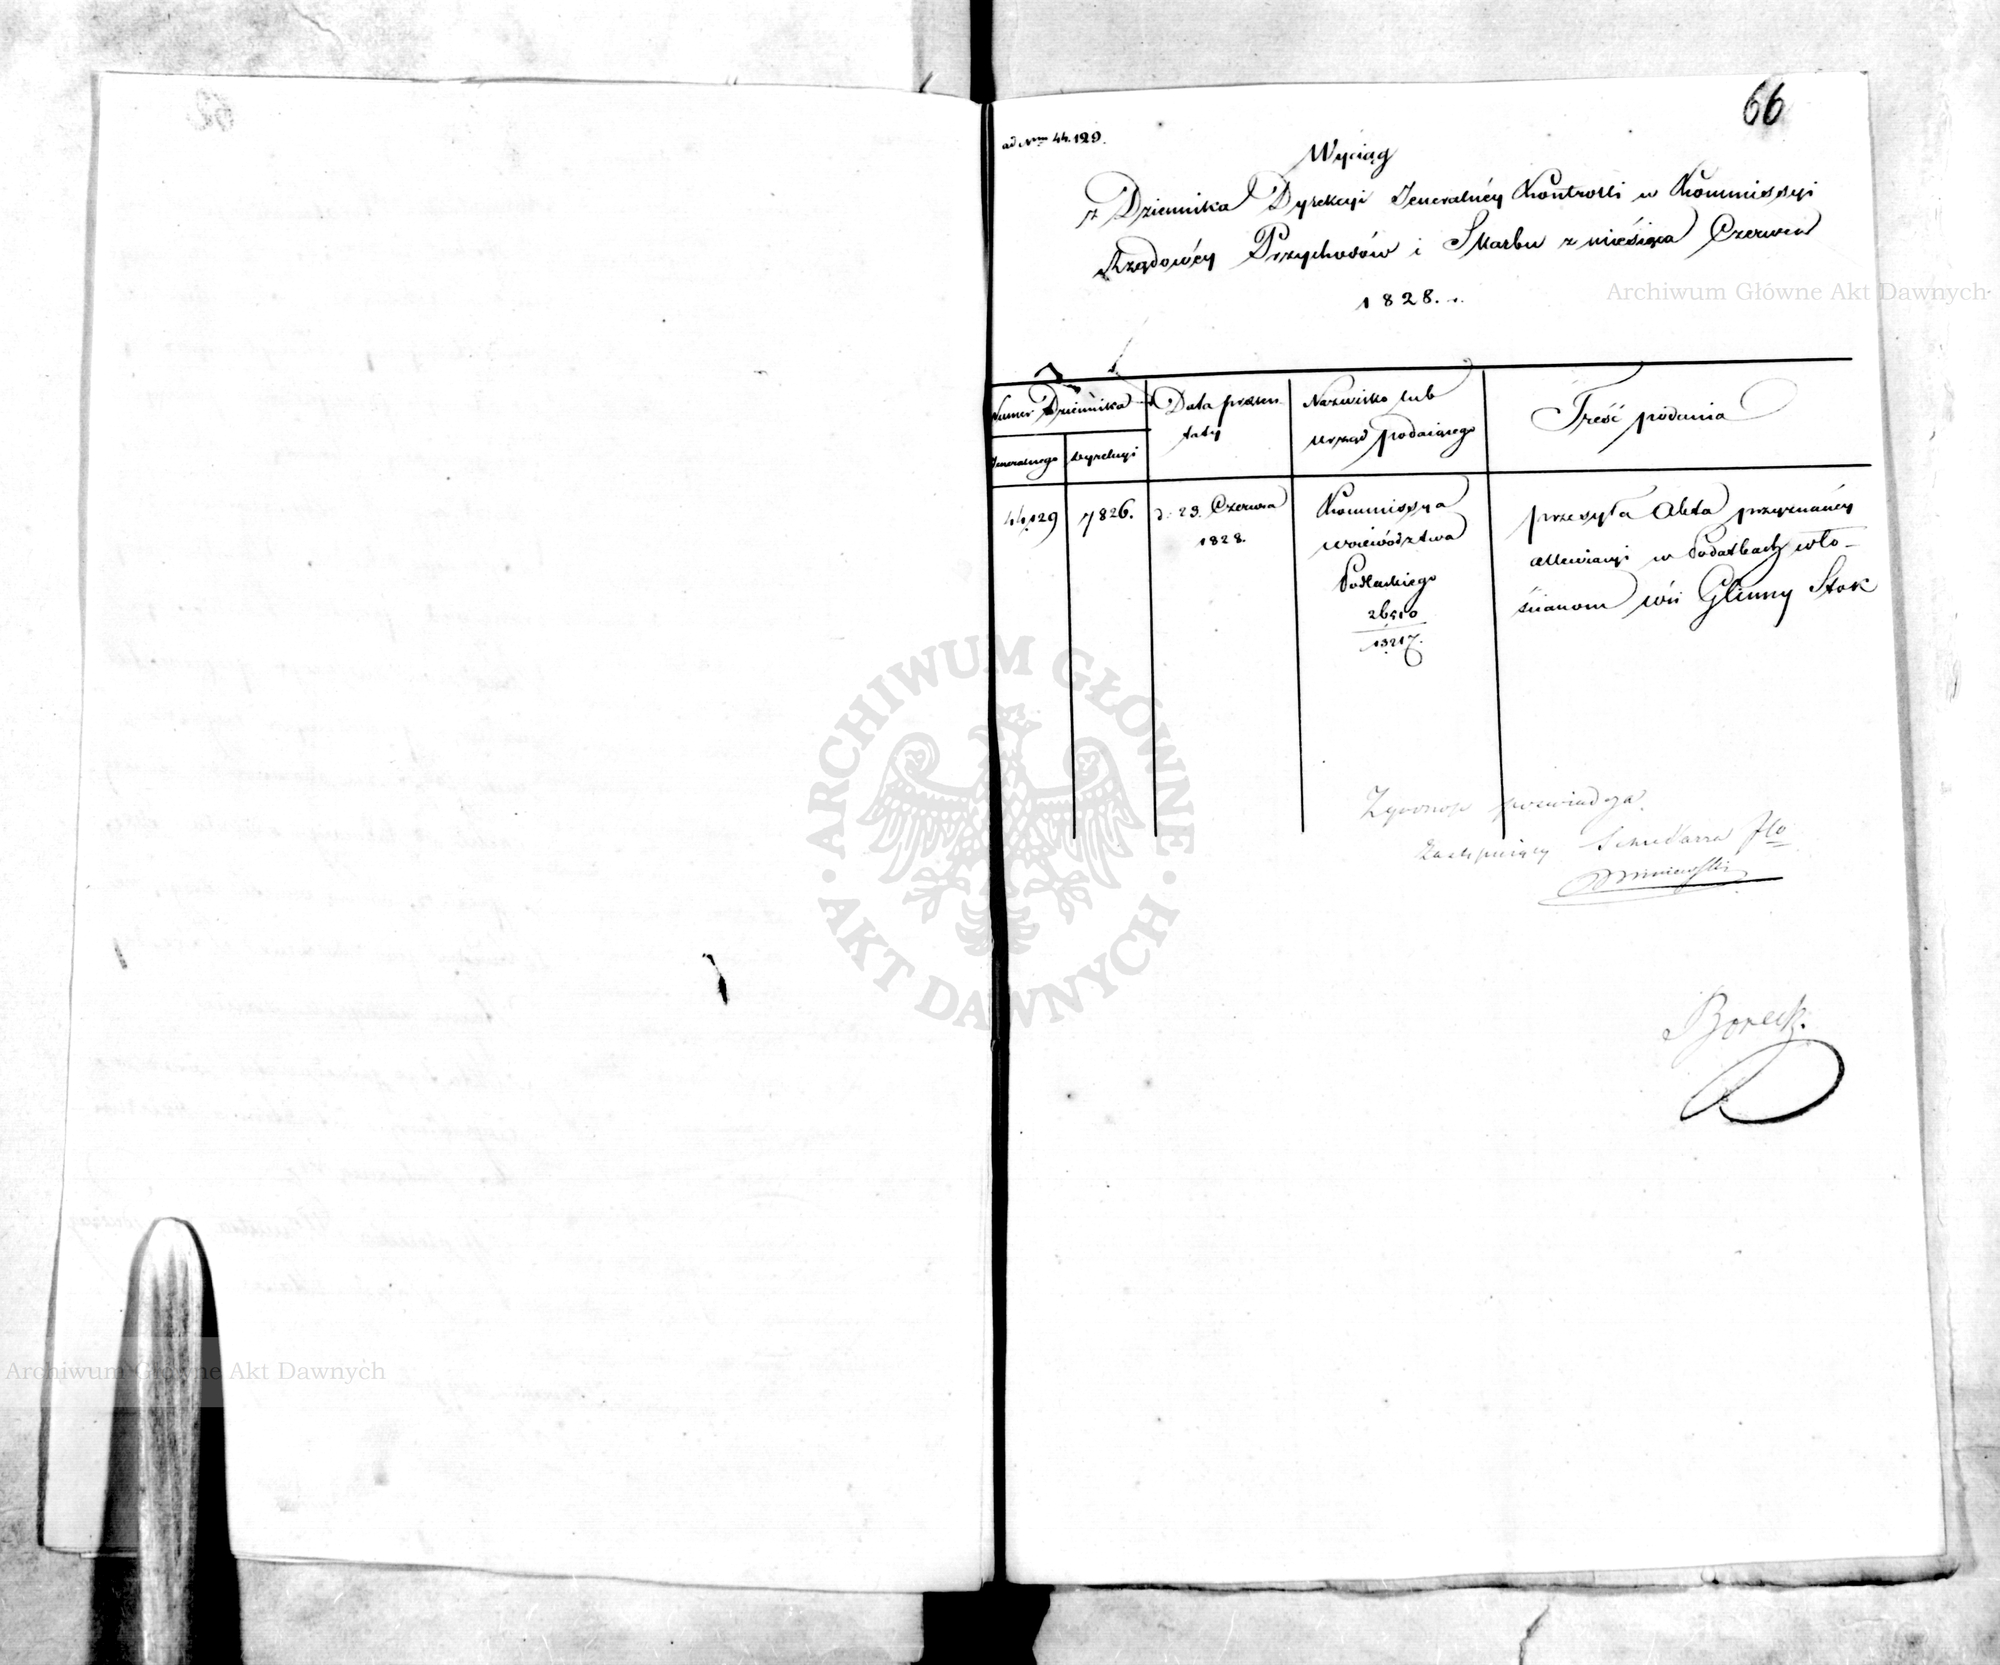 66
ad Nrm 44.129.
Wyciąg
z Dziennika Dyrekcyi Jeneralnéy Kontrolli w Kommissyi
Rządowéy Przychodów i Skarbu z miesiąca Czerwca
1828.
Numer Dziennika
Jeneralnego
Dyrekcyi
Data prezen-
taty
Nazwisko lub
urząd podaiącego
Treść podania
44,129
7826.
d. 23. Czerwca
1828.
Kommissya
woiewództwa
Podlaskiego
26510
13217.
przesyła Akta przyznanéy
allewiacyi w Podatkach wło-
ścianom wsi Glinny Stok
Zgodność poświadcza.
Zastępuiący Sekretarza Jlo
Archiwum Główne Akt Dawnych
ARCHIWUM GŁÓWNE
AKT DAWNYCH
Archiwum Główne Akt Dawnych